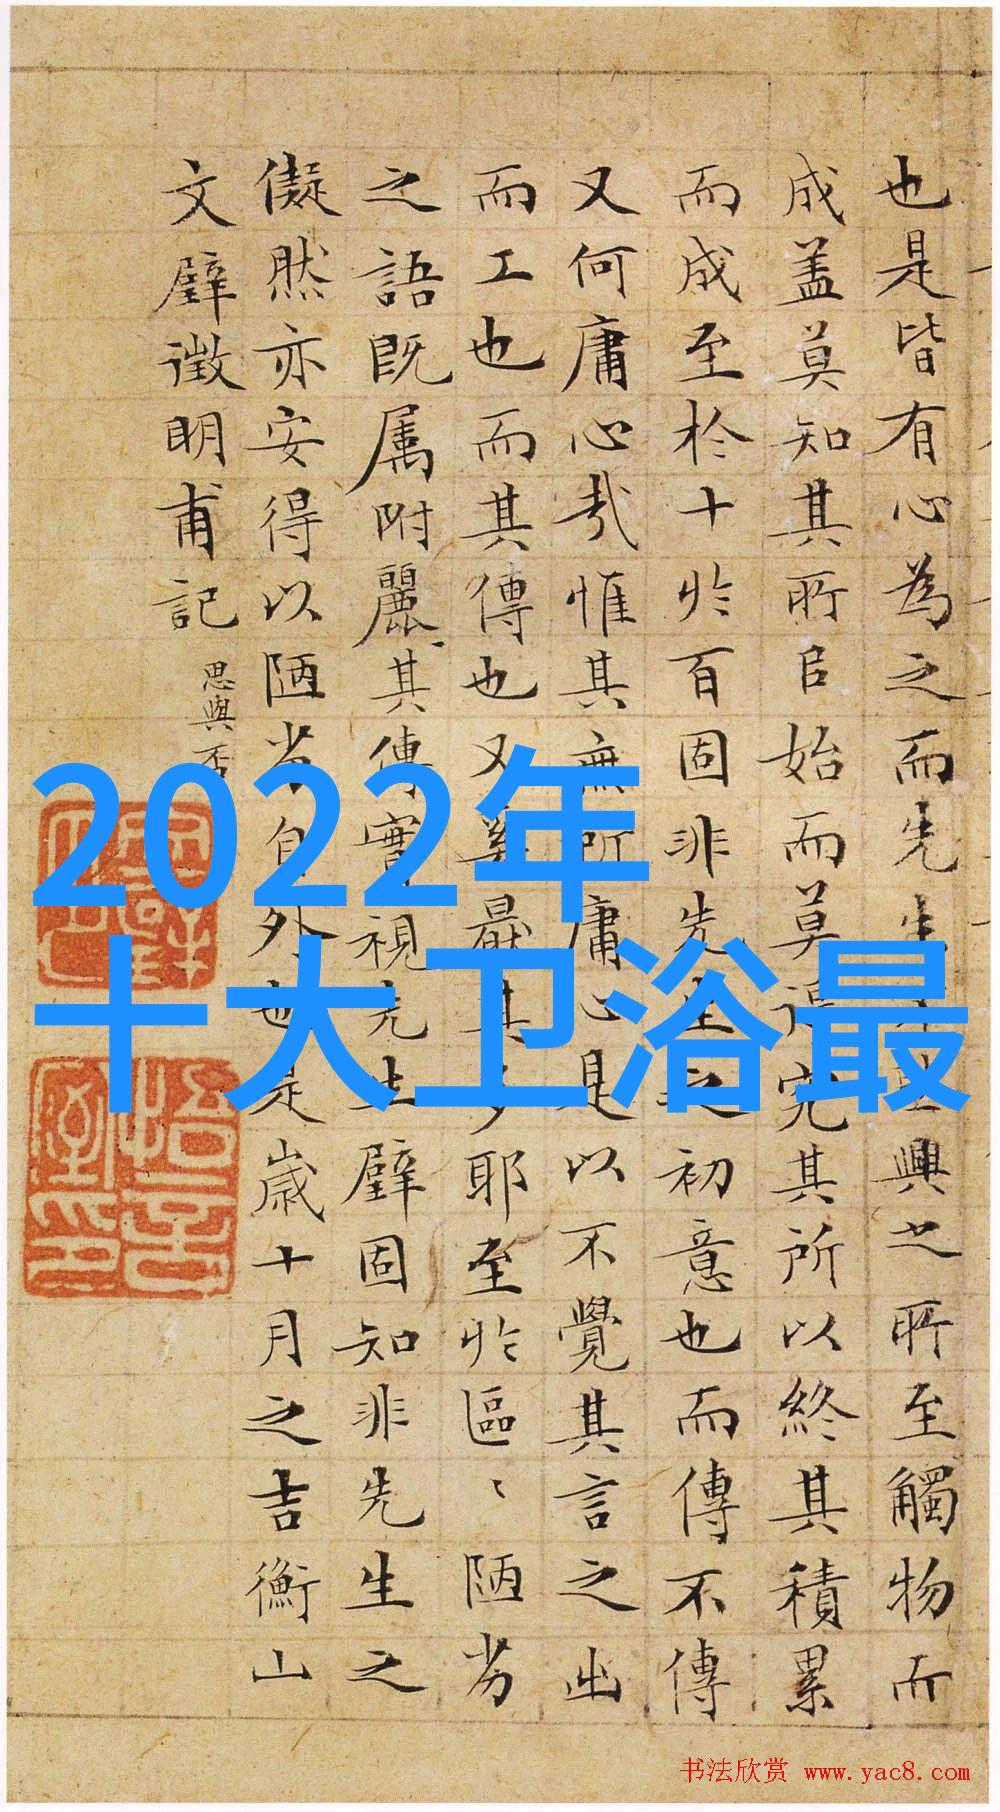 也是皆有心為之而先生
興之所至觸物而
成盖莫知其所自始而莫
究其所以終其積累
而成至於十於百固非先生之初意也而傳不傳
又何庸心哉惟其無所庸心是以不覺其言之出
而工也而其傳也又奚
其多耶至於區〻陋劣
之語既属附麗其傳實視先生璧固知非先生之
儗然亦安得以陋劣自外也是歲十月之吉衡山
文璧徴明甫記
思與
2022年
十大卫浴最
书法欣赏 www.yac8.com